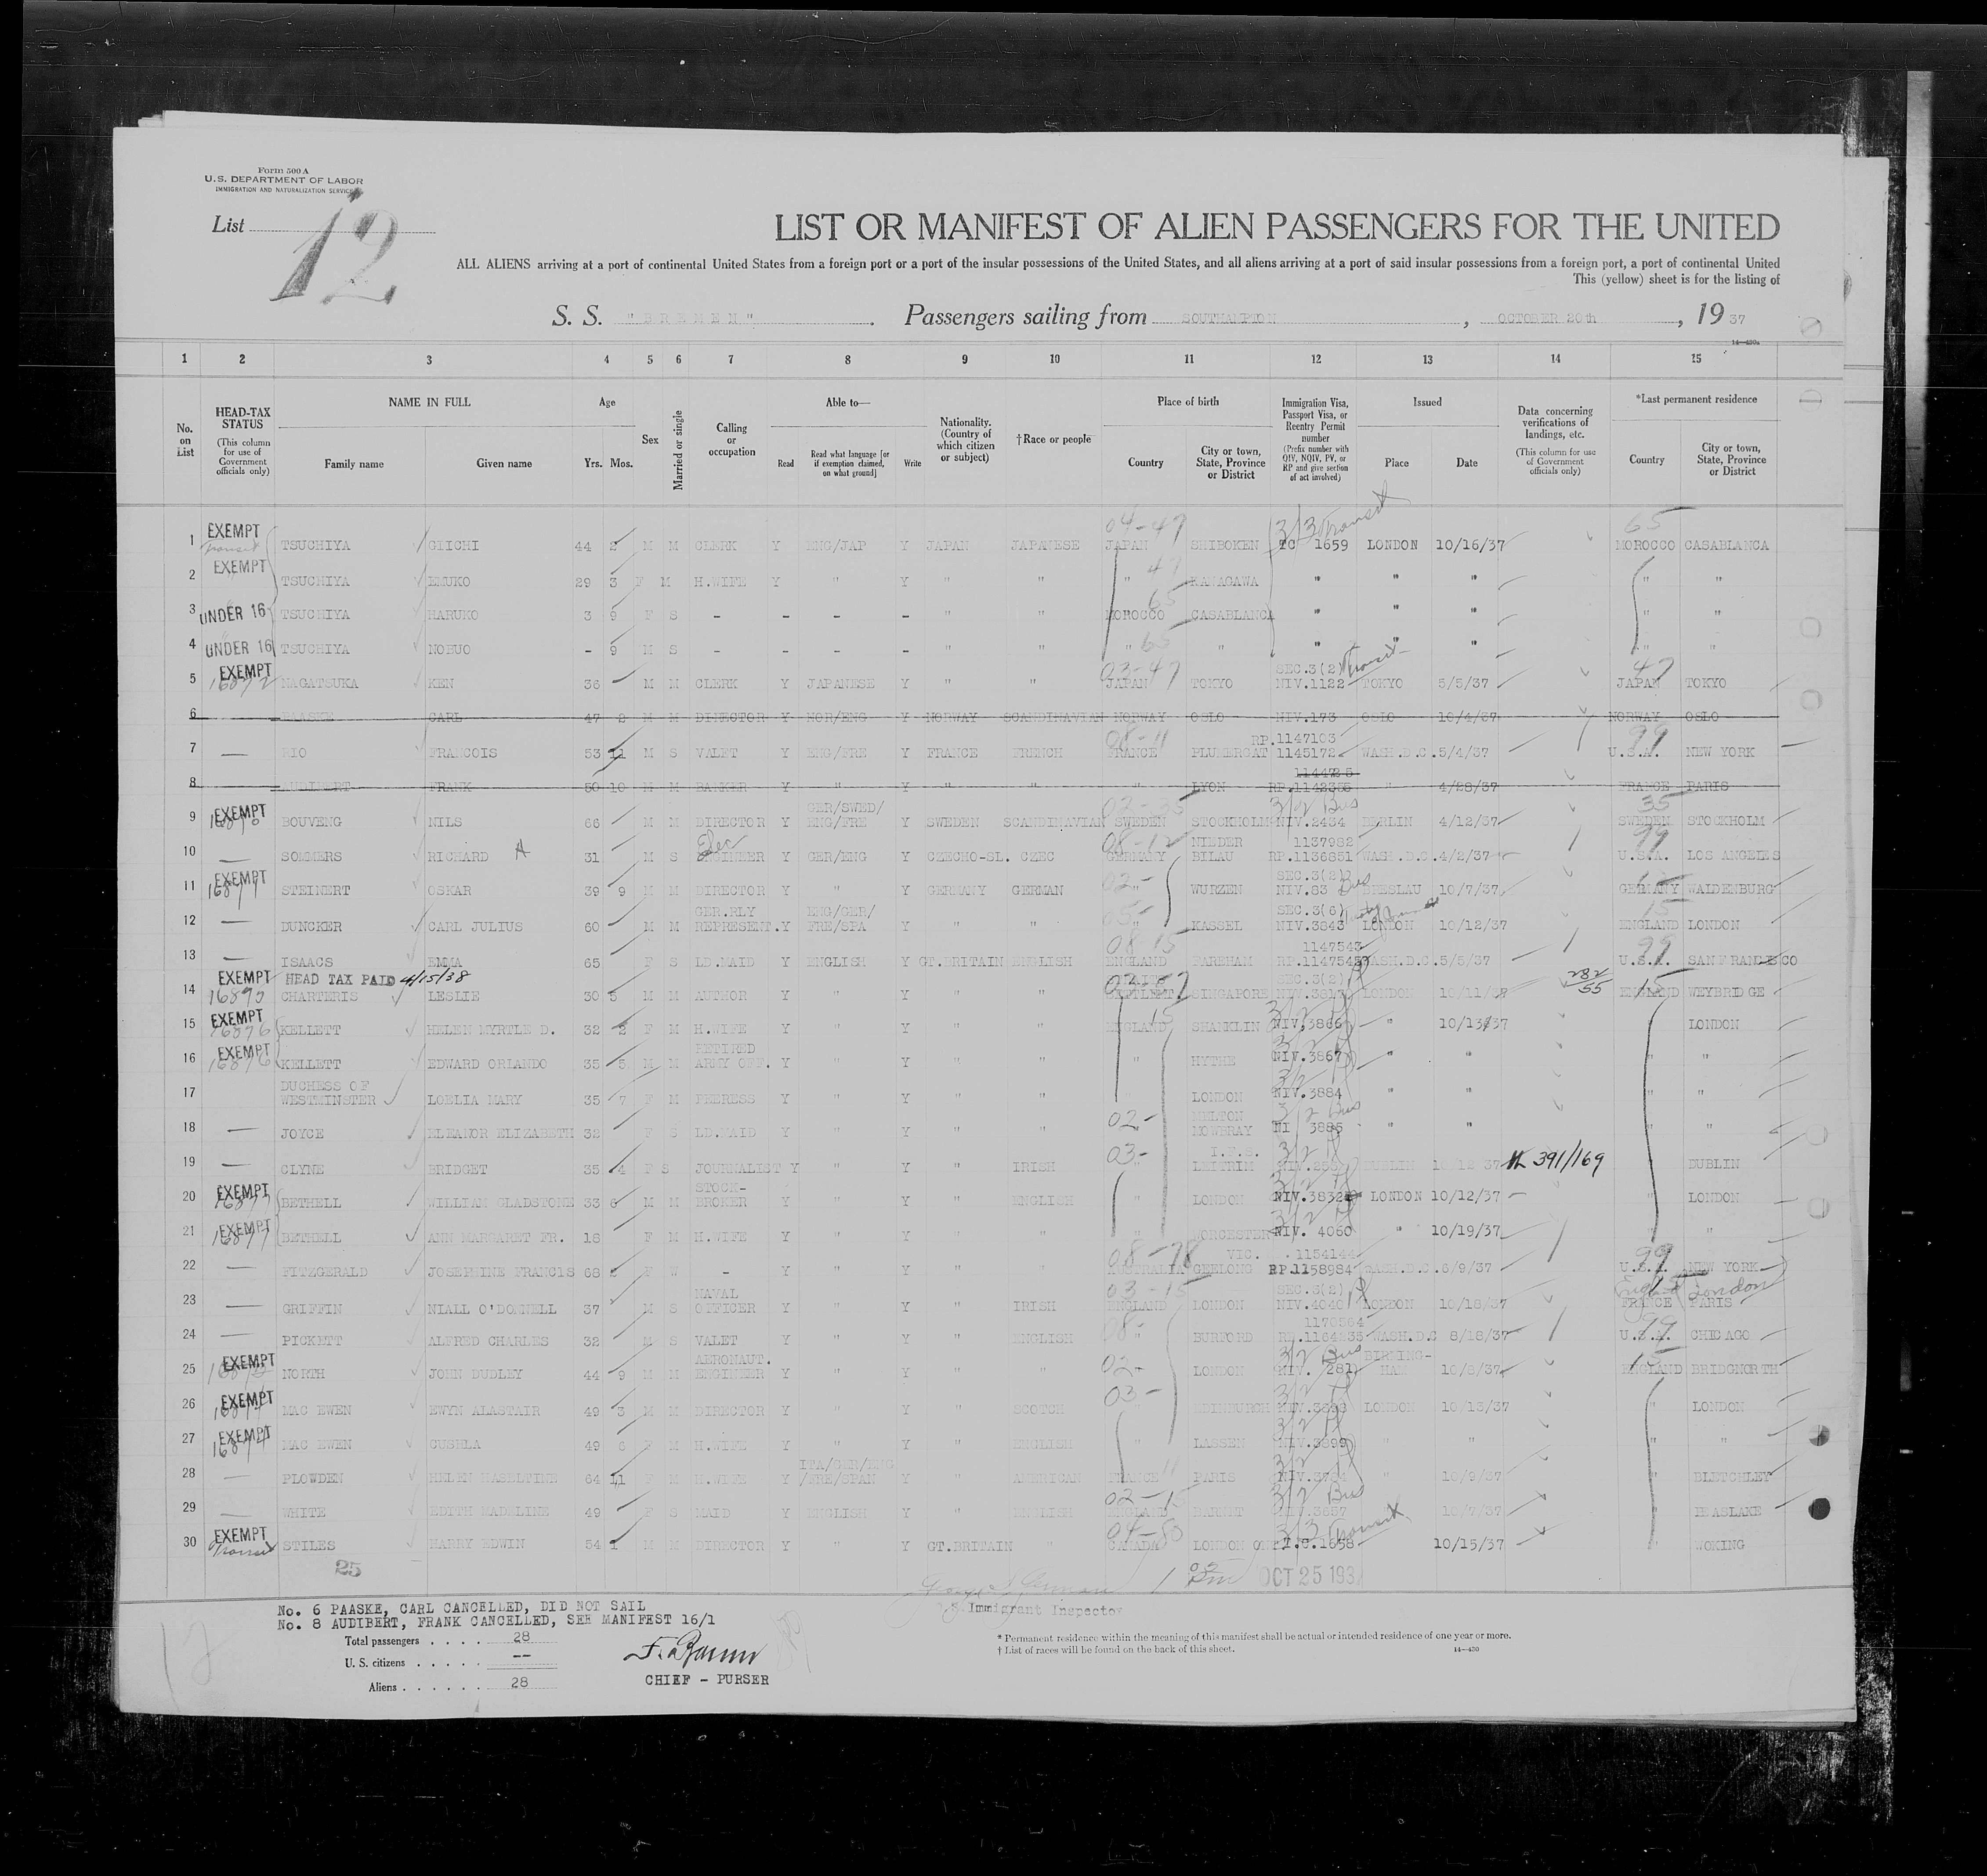 Form 500 A
U.S. DEPARTMENT OF LABOR
IMMIGRATION AND NATURALIZATION SERVICE
List 12
LIST OR MANIFEST OF ALIEN PASSENGERS FOR THE UNITED
ALL ALIENS arriving at a port of continental United States from a foreign port or a port of the insular possessions of the United States, and all aliens arriving at a port of said insular possessions from a foreign port, a port of continental United
This (yellow) sheet is for the listing of
S. S. "BREMEN". Passengers sailing from SOUTHAMPTON, OCTOBER 20th, 1937
14—430a
1 2 3 4 5 6 7 8 9 10 11 12 13 14 15
No. on List
HEAD-TAX STATUS (This column for use of Government officials only)
NAME IN FULL Family name Given name
Age Yrs. Mos.
Sex
Married or single
Calling or occupation
Able to— Read Read what language [or if exemption claimed, on what ground] Write
Nationality. (Country of which citizen or subject)
†Race or people
Place of birth Country City or town, State, Province or District
Immigration Visa, Passport Visa, or Reentry Permit number (Prefix number with QIV, NQIV, PV, or RP and give section of act involved)
Issued Place Date
Data concerning verifications of landings, etc. (This column for use of Government officials only)
*Last permanent residence Country City or town, State, Province or District
EXEMPT 04-47 3/3 Transit 65
1 Transit TSUCHIYA GIICHI 44 2 M M CLERK Y ENG/JAP Y JAPAN JAPANESE JAPAN SHIBOKEN TC 1659 LONDON 10/16/37 MOROCCO CASABLANCA
EXEMPT 47
2 TSUCHIYA EMUKO 29 3 F M H.WIFE Y " Y " " " KANAGAWA " " " " "
65
3 UNDER 16 TSUCHIYA HARUKO 3 9 F S - - - - " " MOROCCO CASABLANCA " " " " "
4 UNDER 16 TSUCHIYA NOBUO - 9 M S - - - - " " " 65 " " " " " "
EXEMPT 03-47 SEC.3(2) Transit 47
5 16872 NAGATSUKA KEN 36 M M CLERK Y JAPANESE Y " " JAPAN TOKYO NIV.1122 TOKYO 5/5/37 JAPAN TOKYO
6 PAASKE CARL 47 2 M M DIRECTOR Y NOR/ENG Y NORWAY SCANDINAVIAN NORWAY OSLO NIV.173 OSLO 10/4/37 NORWAY OSLO
08-11 RP.1147103 99
7 — RIO FRANCOIS 53 11 M S VALET Y ENG/FRE Y FRANCE FRENCH FRANCE PLUMERGAT 1145172 WASH.D.C. 5/4/37 U.S.A. NEW YORK
8 AUDIBERT FRANK 50 10 M M BANKER Y " Y " " " LYON RP.1142355 " 4/28/37 FRANCE PARIS
EXEMPT GER/SWED/ 02-35 3/2 Bus 35
9 BOUVENG NILS 66 M M DIRECTOR Y ENG/FRE Y SWEDEN SCANDINAVIAN SWEDEN STOCKHOLM NIV.2434 BERLIN 4/12/37 SWEDEN STOCKHOLM
Elec 08-12 NIEDER 1137982 99
10 — SOMMERS RICHARD A 31 M S ENGINEER Y GER/ENG Y CZECHO-SL. CZEC GERMANY BILAU RP.1136851 WASH.D.C. 4/2/37 U.S.A. LOS ANGELES
EXEMPT SEC.3(2) Bus
11 16871 STEINERT OSKAR 39 9 M M DIRECTOR Y " Y GERMANY GERMAN 02- " WURZEN NIV.83 BRESLAU 10/7/37 GERMANY WALDENBURG
GER.RLY ENG/GER/ 05- SEC.3(6) 15
12 — DUNCKER CARL JULIUS 60 M M REPRESENT. Y FRE/SPA Y " " " KASSEL NIV.3843 LONDON 10/12/37 ENGLAND LONDON
08-15 1147543 99
13 — ISAACS EMMA 65 F S LD.MAID Y ENGLISH Y GT.BRITAIN ENGLISH ENGLAND FAREHAM RP.1147545 WASH.D.C. 5/5/37 U.S.A. SAN FRANCISCO
EXEMPT HEAD TAX PAID 4/15/38 SEC.3(2) 282/55 15
14 16875 CHARTERIS LESLIE 30 5 M M AUTHOR Y " Y " " SINGAPORE LONDON 10/11/37 ENGLAND WEYBRIDGE
EXEMPT 15
15 16876 KELLETT HELEN MYRTLE D. 32 2 F M H.WIFE Y " Y " " ENGLAND SHANKLIN NIV.3866 " 10/13/37 LONDON
EXEMPT RETIRED
16 16876 KELLETT EDWARD ORLANDO 35 5 M M ARMY OFF. Y " Y " " " HYTHE NIV.3867 " " " "
DUCHESS OF
17 WESTMINSTER LOELIA MARY 35 7 F M PEERESS Y " Y " " " LONDON NIV.3884 " " " "
02- MELTON 3/2 Bus
18 — JOYCE ELEANOR ELIZABETH 32 F S LD.MAID Y " Y " " MOWBRAY NI 3885 " " " "
03- I.F.S.
19 — CLYNE BRIDGET 35 4 F S JOURNALIST Y " Y " IRISH " LEITRIM DUBLIN 10/12/37 391/169 DUBLIN
EXEMPT STOCK-
20 16877 BETHELL WILLIAM GLADSTONE 33 6 M M BROKER Y " Y " ENGLISH " LONDON NIV.3832 LONDON 10/12/37 LONDON
EXEMPT
21 16877 BETHELL ANN MARGARET FR. 18 F M H.WIFE Y " Y " " " WORCESTER NIV. 4060 " 10/19/37 " "
08-78 VIC. 1154144 99
22 — FITZGERALD JOSEPHINE FRANCIS 68 2 F W - Y " Y " " AUSTRALIA GEELONG RP.1158984 WASH.D.C. 6/9/37 U.S.A. NEW YORK
NAVAL 03-15 SEC.3(2) England London
23 — GRIFFIN NIALL O'DONNELL 37 M S OFFICER Y " Y " IRISH ENGLAND LONDON NIV.4040 LONDON 10/18/37 FRANCE PARIS
08- 1170564 99
24 — PICKETT ALFRED CHARLES 32 M S VALET Y " Y " ENGLISH " BURFORD RP.1164235 WASH.D.C 8/18/37 U.S.A. CHICAGO
EXEMPT AERONAUT. 02- 3/2 Bus BIRMING- 15
25 NORTH JOHN DUDLEY 44 9 M M ENGINEER Y " Y " " LONDON NIV. 281 HAM 10/8/37 ENGLAND BRIDGNORTH
EXEMPT 03-
26 16874 MAC EWEN EWYN ALASTAIR 49 3 M M DIRECTOR Y " Y " SCOTCH " EDINBURGH LONDON 10/13/37 " LONDON
EXEMPT
27 16874 MAC EWEN CUSHLA 49 6 F M H.WIFE Y " Y " ENGLISH " LASSEN NIV.3899 " " " "
ITA/GER/ENG 11
28 — PLOWDEN HELEN HASELTINE 64 11 F M H.WIFE Y /FRE/SPAN Y " AMERICAN FRANCE PARIS " 10/9/37 " BLETCHLEY
02-15 3/2 Bus
29 — WHITE EDITH MADELINE 49 F S MAID Y ENGLISH Y " ENGLISH ENGLAND BARNET " 10/7/37 " PEASLAKE
EXEMPT 04-80 3/3 Transit
30 Transit STILES HARRY EDWIN 54 1 M M DIRECTOR Y " Y GT.BRITAIN " CANADA LONDON ONT. T.C.1658 10/15/37 " WOKING
25
OCT 25 193
U.S. Immigrant Inspector
No. 6 PAASKE, CARL CANCELLED, DID NOT SAIL
No. 8 AUDIBERT, FRANK CANCELLED, SEE MANIFEST 16/1
Total passengers . . . . 28
U. S. citizens . . . . . --
Aliens . . . . . . 28
CHIEF - PURSER
* Permanent residence within the meaning of this manifest shall be actual or intended residence of one year or more.
† List of races will be found on the back of this sheet.
14—430
12